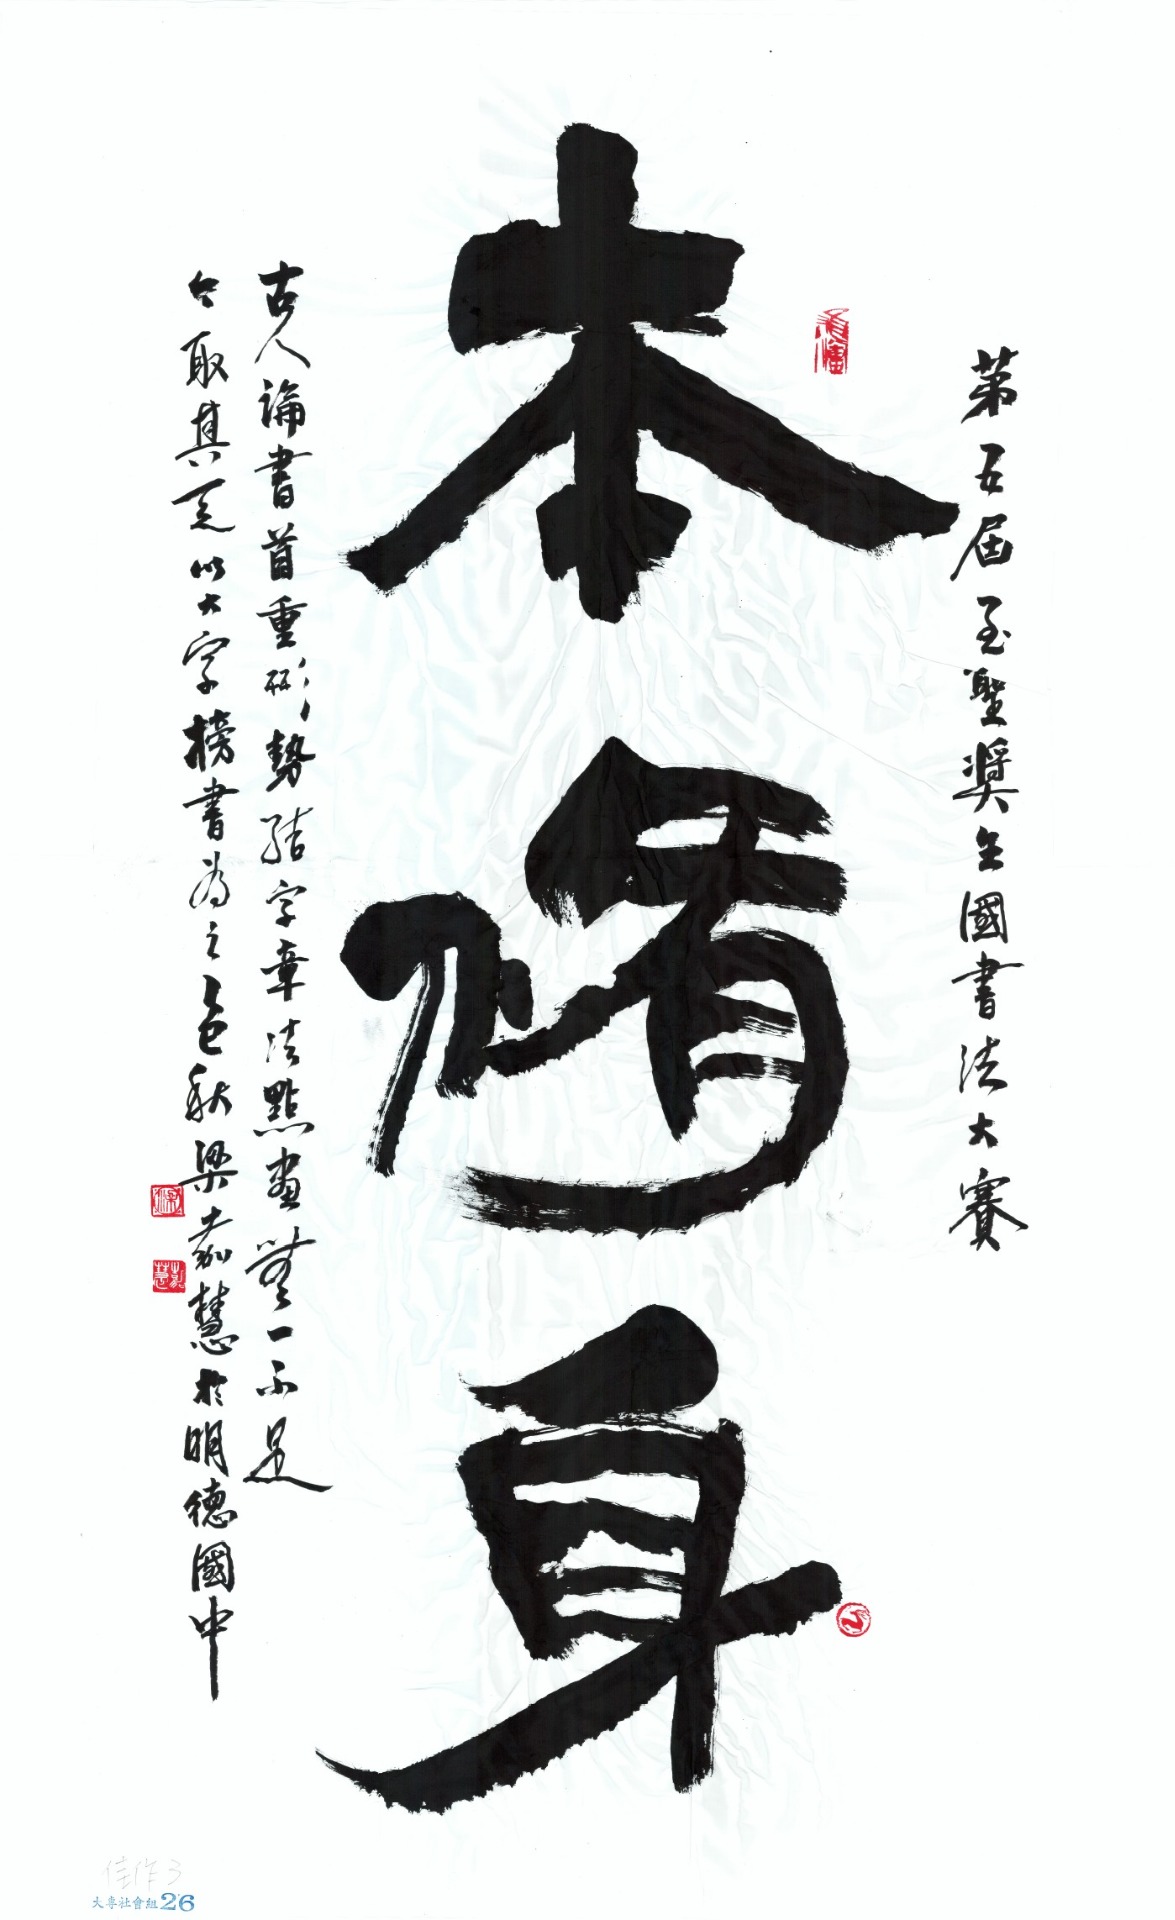 第五屆至聖獎全國書法大賽
本脩身
古人論書首重形勢結字章法點畫無一不足
今取其意以大字榜書為之乙巳秋梁嘉慧於明德國中
佳作3
大專社會組26